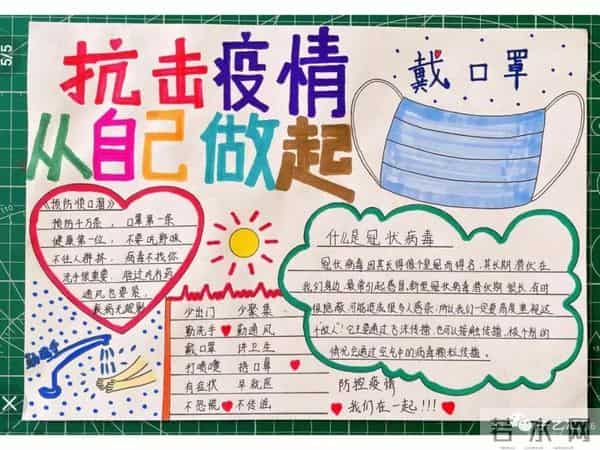 抗击疫情
从自己做起
戴口罩
《预防顺口溜》
预防千万条，口罩第一条
健康第一位，不要吃野味
不往人群挤，病毒不找你
洗手很重要，胜过吃补药
通风也要紧，
勤洗手
少出门 少聚集
勤洗手 勤通风
戴口罩 讲卫生
打喷嚏 捂口鼻
有症状 早就医
不恐慌 不传谣
什么是冠状病毒
冠状病毒因其长得像个皇冠而得名，其长期潜伏在
我们身边，最常引起感冒，新型冠状病毒潜伏期很长，有时
很隐蔽，可能造成很多人感染，所以我们一定要高度重视这
个敌人！它主要通过飞沫传播，也可以接触传播，极个别的
情况会通过空气中的病毒颗粒传播。
防控疫情
我们在一起！！！
5/5
若水网